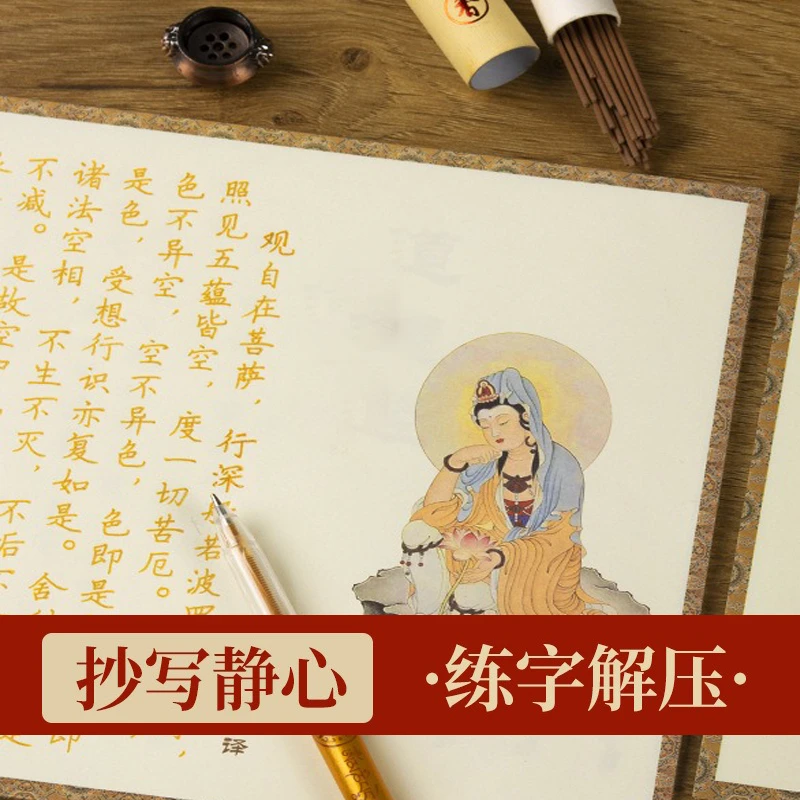 观自在菩萨，行深般若波罗
照见五蕴皆空，度一切苦厄。
色不异空，空不异色，色即是
是色，受想行识亦复如是。舍
诸法空相，不生不灭，不垢不
不减。是故空
译
抄写静心
·练字解压·